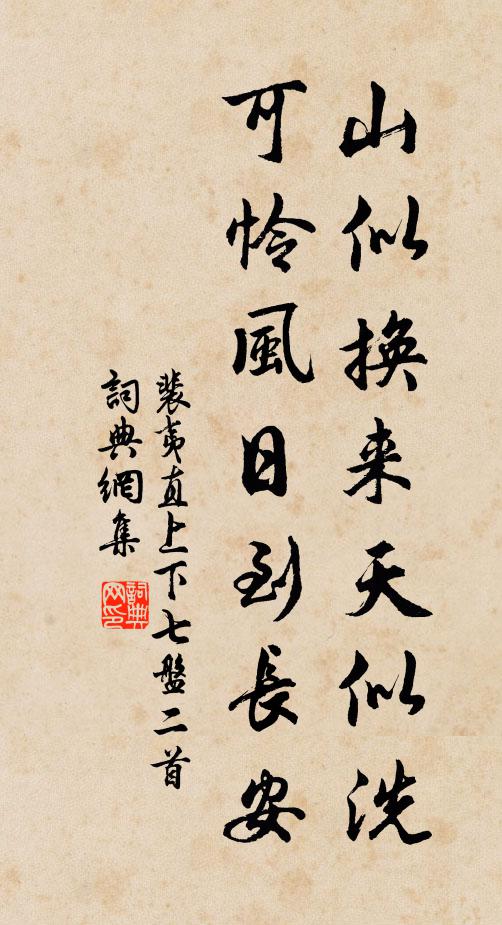 山似換来天似洗
可憐風日到長安
裴夷直上下七盤二首
詞典網集
詞典
网印